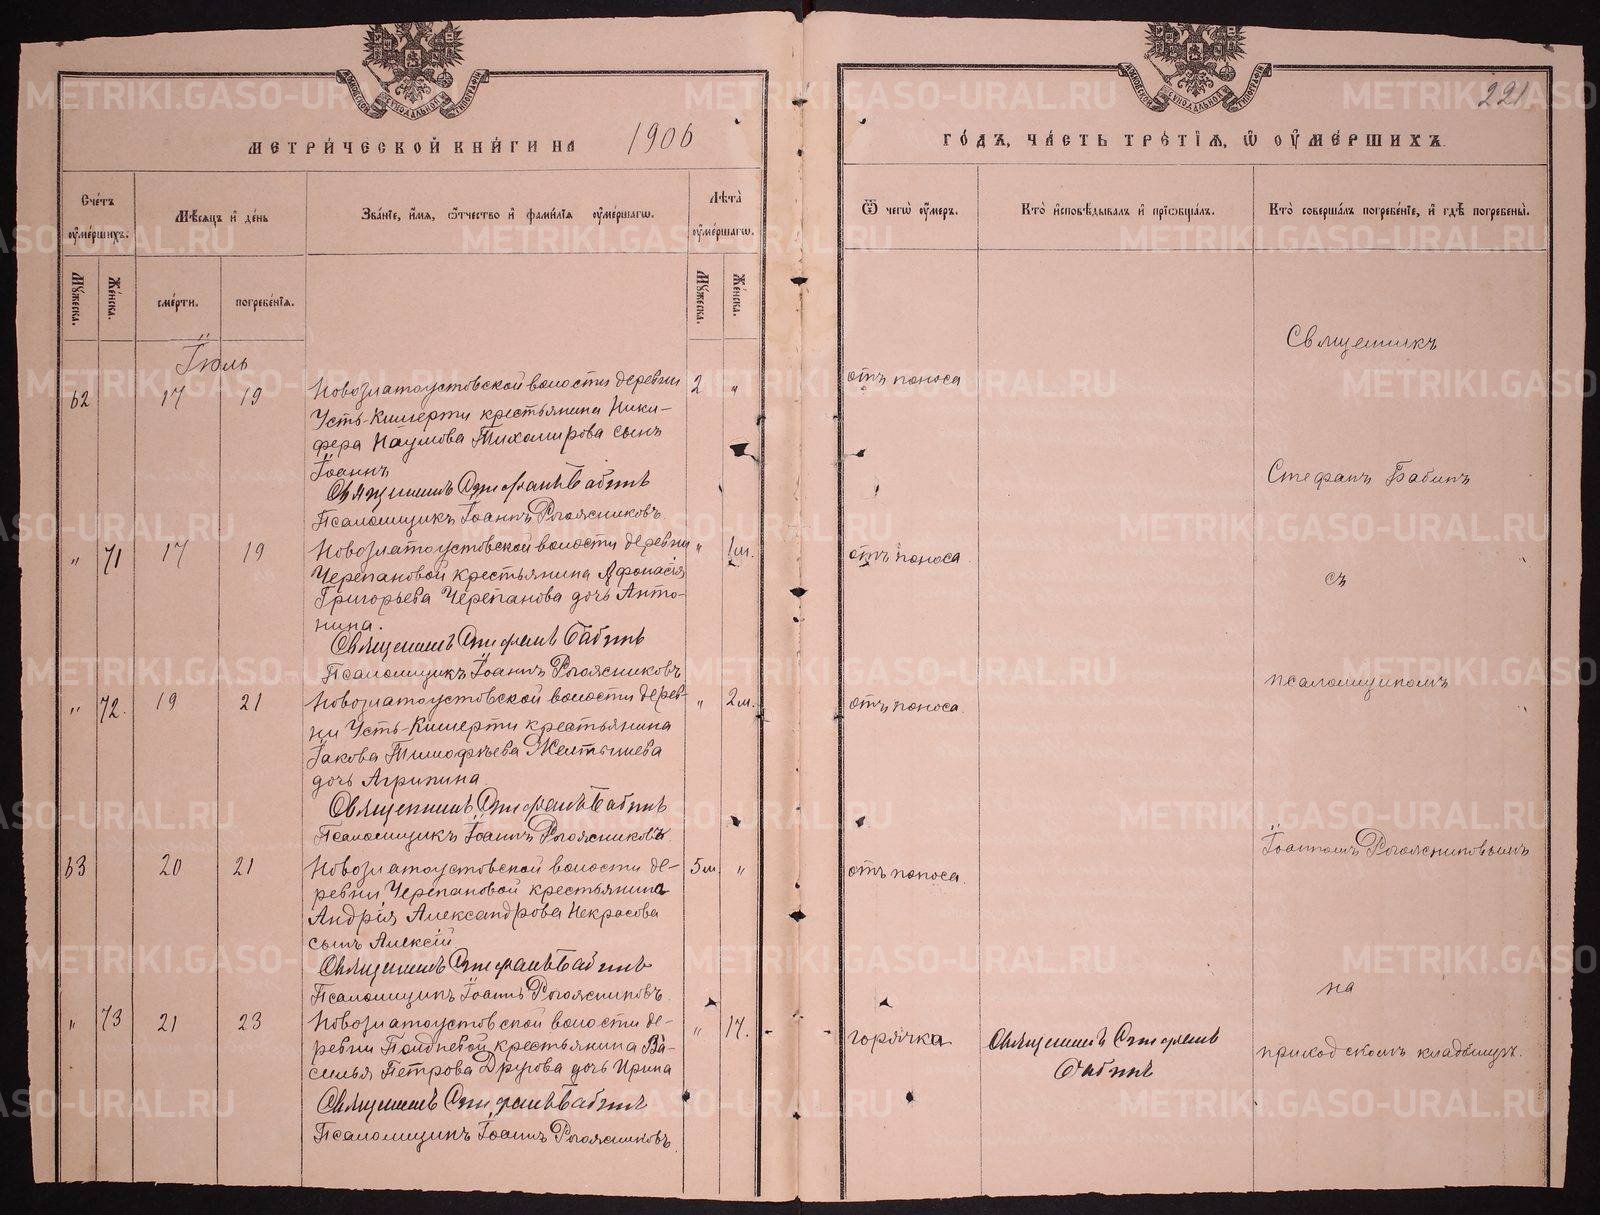 МЕТРИЧЕСКОЙ КНИГИ НА 1906
Счетъ умершихъ.
Мѣсяцъ и день
Званіе, имя, отчество и фамилія умершаго.
Лѣта умершаго.
Мужеска.
Женска.
смерти.
погребенія.
Мужеска.
Женска.
Іюль
62 17 19 2 "
Новозлатоустовской волости деревни
Усть-Кишерти крестьянина Ники-
фера Наумова Тихомирова сынъ
Іоаннъ
Священникъ Стефанъ Бабинъ
Псаломщикъ Іоаннъ Рогожниковъ
" 71 17 19 " 1 м.
Новозлатоустовской волости деревни
Черепановой крестьянина Афонасія
Григорьева Черепанова дочь Анто-
нина.
Священникъ Стефанъ Бабинъ
Псаломщикъ Іоаннъ Рогожниковъ
" 72. 19 21 " 2 м.
Новозлатоустовской волости дерев-
ни Усть-Кишерти крестьянина
Іакова Тимофѣева Желтышева
дочь Агрипина
Священникъ Стефанъ Бабинъ
Псаломщикъ Іоаннъ Рогожниковъ
63 20 21 5 м "
Новозлатоустовской волости де-
ревни Черепановой крестьянина
Андрія Александрова Некрасова
сынъ Алексій
Священникъ Стефанъ Бабинъ
Псаломщикъ Іоаннъ Рогожниковъ
" 73 21 23 " 17.
Новозлатоустовской волости де-
ревни крестьянина Ва-
силья Петрова дочь Ирина
Священникъ Стефанъ Бабинъ
Псаломщикъ Іоаннъ Рогожниковъ
221
ГОДЪ, ЧАСТЬ ТРЕТІЯ, О УМЕРШИХЪ.
Отъ чего умеръ.
Кто исповѣдывалъ и пріобщалъ.
Кто совершалъ погребеніе, и гдѣ погребены.
отъ поноса
отъ поноса
отъ поноса.
отъ поноса.
горячка
Священникъ Стефанъ
Бабинъ
Священникъ
Стефанъ Бабинъ
съ
псаломщикомъ
Іоанномъ Рогожниковымъ
на
приходскомъ кладбищѣ.
METRIKI.GASO-URAL.RU